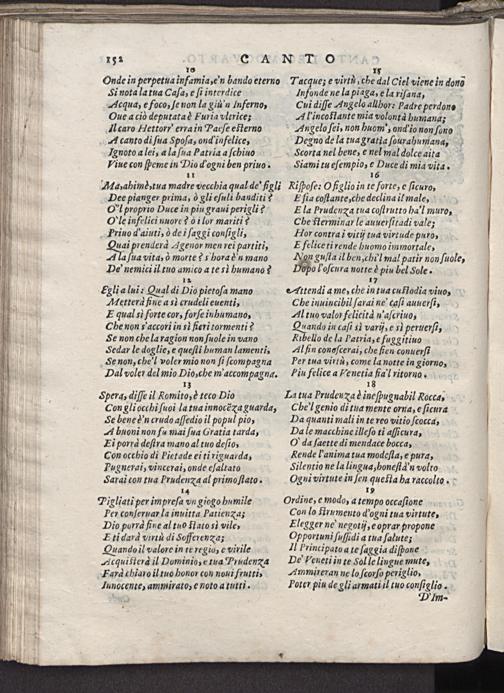 152 CANTO
10
Onde in perpetua infamia, e'n bando eterno
Si nota la tua Casa, e si interdice
Acqua, e foco, se non la giù'n Inferno,
Oue a ciò deputata è Furia vltrice;
Il caro Hettorr' erra in Paese esterno
A canto di sua Sposa, ond'infelice,
Ignoto a lei, a la sua Patria a schiuo
Viue con speme in Dio d'ogni ben priuo.
11
Ma, ahimè, tua madre vecchia qual de' figli
Dee pianger prima, ò gli esuli banditi?
O'l proprio Duce in piu graui perigli?
O'le infelici nuore? ò i lor mariti?
Priuo d'aiuti, ò de i saggi consigli,
Quai prenderà Agenor men rei partiti,
A la sua vita, ò morte? s'hora è'n mano
De' nemici il tuo amico a te sì humano?
12
Egli a lui: Qual di Dio pietosa mano
Metterà fine a sì crudeli euenti,
E qual sì forte cor, forse inhumano,
Che non s'accori in sì fieri tormenti?
Se non che la ragion non suole in vano
Sedar le doglie, e questi human lamenti,
Se non, che'l voler mio non si scompagna
Dal voler del mio Dio, che m'accompagna.
13
Spera, disse il Romito, è teco Dio
Con gli occhi suoi la tua innocēza guarda,
Se bene è'n crudo assedio il popul pio,
A buoni non fu mai sua Gratia tarda,
Ei porrà destra mano al tuo desio,
Con occhio di Pietade ei ti riguarda,
Pugnerai, vincerai, onde esaltato
Sarai con tua Prudenza al primo stato.
14
Pigliati per impresa vn giogo humile
Per conseruar la inuitta Patienza;
Dio porrà fine al tuo stato sì vile,
E ti darà virtù di Sofferenza;
Quando il valore in te regio, e virile
Acquisterà il Dominio, e tua Prudenza
Farà chiaro il tuo honor con noui frutti,
Innocente, ammirato, e noto a tutti.
15
Tacque; e virtù, che dal Ciel viene in dono
Infonde ne la piaga, e la risana,
Cui disse Angelo allhor: Padre perdono
A l'incostante mia volontà humana;
Angelo sei, non huom', ond'io non sono
Degno de la tua gratia sourahumana,
Scorta nel bene, e nel mal dolce aita
Siami tu esempio, e Duce di mia vita.
16
Rispose: O figlio in te forte, e sicuro,
E sia costante, che declina il male,
E la Prudenza tua costrutto ha'l muro,
Che sterminar le auuersitadi vale;
Hor contra i vitij tua virtude puro,
E felice ti rende huomo immortale,
Non gusta il ben, ch'i'l mal patir non suole,
Dopo l'oscura notte è piu bel Sole.
17
Attendi a me, che in tua custodia viuo,
Che inuincibil sarai ne' casi auuersi,
Al tuo valor felicità n'ascriuo,
Quando in casi sì varij, e sì peruersi,
Ribello de la Patria, e fuggitiuo
Al fin conoscerai, che sien conuersi
Per tua virtù, come la notte in giorno,
Piu felice a Venetia fia'l ritorno.
18
La tua Prudenza è inespugnabil Rocca,
Che'l genio di tua mente orna, e sicura
Da quanti mali in te reo vitio scocca,
Da le macchine illeso ti assicura,
O' da saette di mendace bocca,
Rende l'anima tua modesta, e pura,
Silentio ne la lingua, honestà'n volto
Ogni virtute in sen questa ha raccolto.
19
Ordine, e modo, a tempo occasione
Con lo strumento d'ogni tua virtute,
Elegger ne' negotij, e oprar propone
Opportuni sussidi a tua salute;
Il Principato a te saggia dispone
De' Veneti in te Sol le lingue mute,
Ammireran ne lo scorso periglio,
Poter piu de gli armati il tuo consiglio.
D'Im-